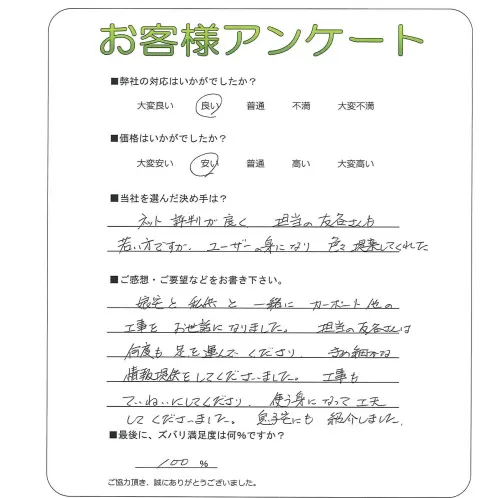 お客様アンケート
■弊社の対応はいかがでしたか?
大変良い 良い 普通 不満 大変不満
■価格はいかがでしたか?
大変安い 安い 普通 高い 大変高い
■当社を選んだ決め手は?
ネット評判が良く 担当の友呂さんも
若い方ですが、ユーザーの身になり 色々提案してくれた
■ご感想・ご要望などをお書き下さい。
と 私供と一緒に カーポート他の
工事を お世話になりました。 担当の友呂さんは
何度も 足を運んで くださり、きめ細かな
情報提供をしてくださいました。 工事も
ていねいにしてくださり、使う身になって工夫
してくださいました。息子宅にも 紹介しました。
■最後に、ズバリ満足度は何%ですか?
100 %
ご協力頂き、誠にありがとうございました。